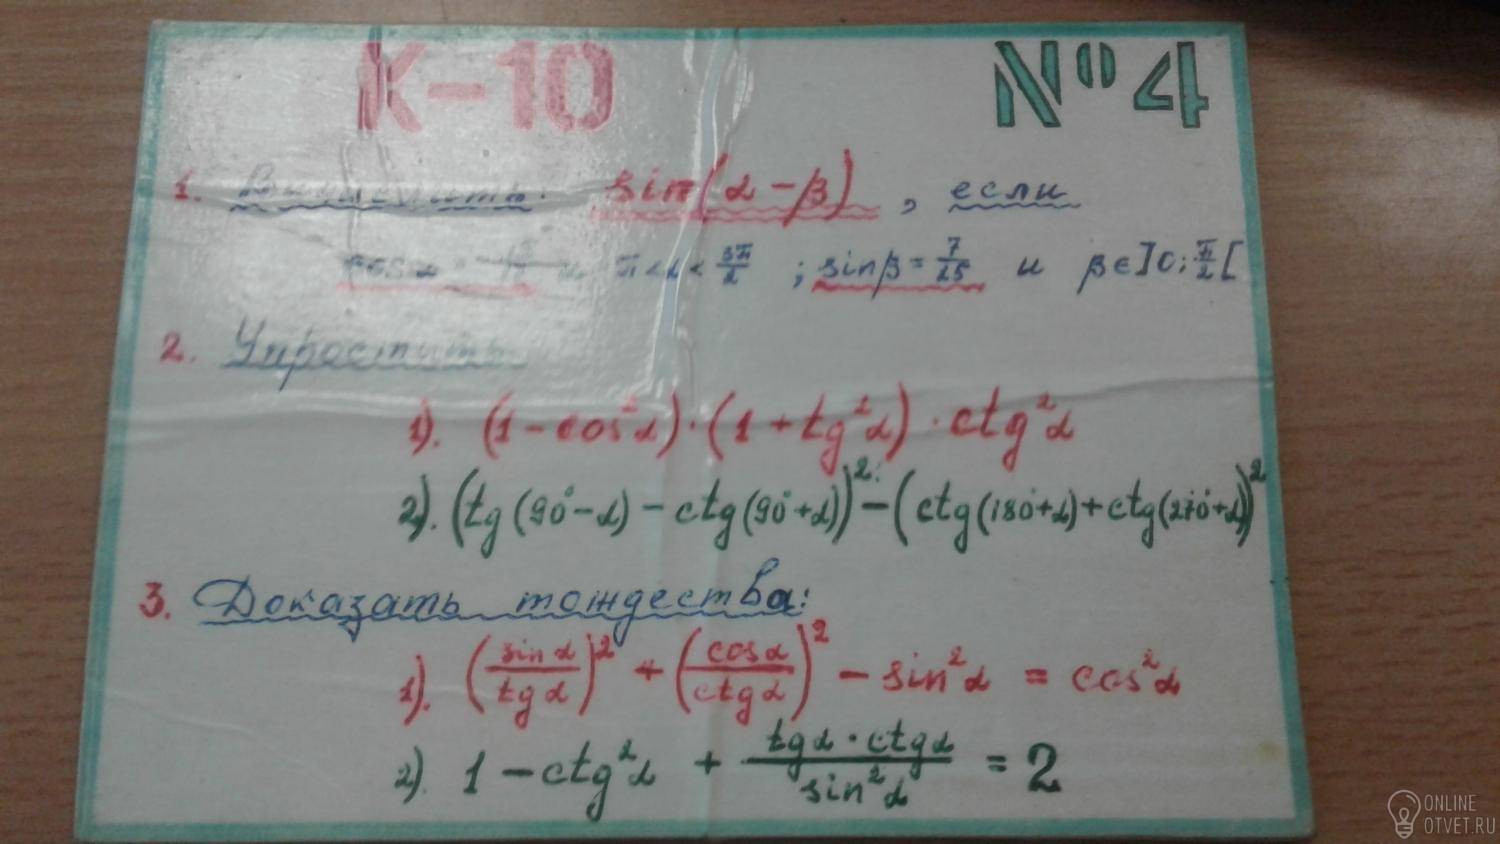 К-10 №4
1. Вычислить: sin(α-β), если
cosα = и π<α<3π/2 ; sinβ=7/25 и β∈]0;π/2[
2. Упростить
1). (1-cos²α)·(1+tg²α)·ctg²α
2). (tg(90°-α)-ctg(90°+α))²-(ctg(180°+α)+ctg(270°+α))²
3. Доказать тождества:
1). (sinα/tgα)²+(cosα/ctgα)²-sin²α = cos²α
2). 1-ctg²α + tgα·ctgα/sin²α = 2
ONLINE
OTVET.RU